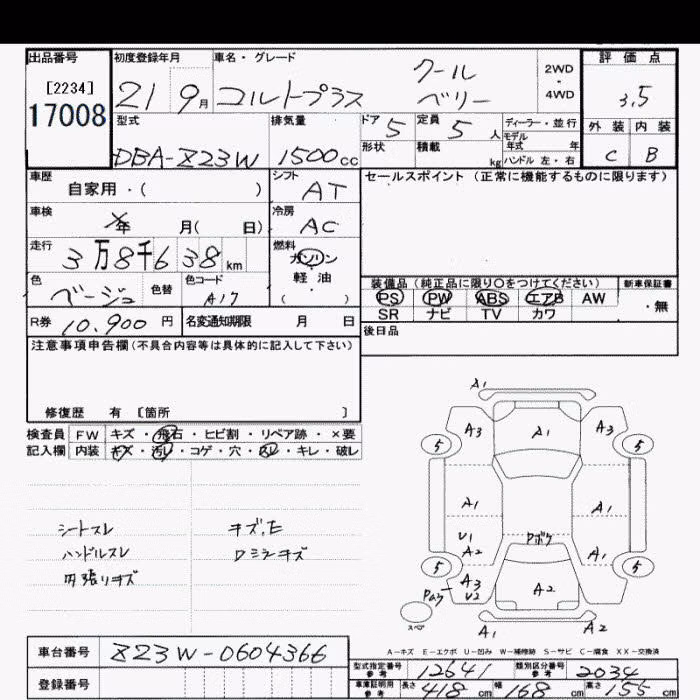 出品番号 初度登録年月 車名・グレード 評価点
[2234] 21 9月 コルトプラス クール 2WD 3.5
17008 ベリー 4WD
型式 排気量 ドア 定員 ディーラー・並行 外装 内装
DBA-Z23W 1500cc 5 5人 モデル年式 年 C B
形状 積載 kg ハンドル 左・右
車歴 シフト セールスポイント (正常に機能するものに限ります)
自家用・( ) AT
車検 冷房
年 月( 日) AC
走行 燃料
3万8千638km ガソリン
色 色替 色コード 軽油
ベージュ A17 ( )
装備品 (純正品に限り○をつけてください) 新車保証書
PS PW ABS エアB AW ・無
SR ナビ TV カワ
R券 10,900円 名変通知期限 月 日
後日品
注意事項申告欄(不具合内容等は具体的に記入して下さい)
修復歴 有 [箇所 ]
検査員 FW キズ・飛石・ヒビ割・リペア跡・×要
記入欄 内装 キズ・汚レ・コゲ・穴・スレ・キレ・破レ
シートスレ
ハンドルスレ
内張りキズ
A1
A3 A1 A3
5 5
A1 A1
U1
A2 A1
5 5
A3
U2 A2
スペア A1 A2
A-キズ E-エクボ U-凹み W-補修跡 S-サビ C-腐食 XX-交換済
車台番号 Z23W-0604366
型式指定番号 参考 12641 類別区分番号 参考 2034
登録番号
車庫証明用 参考 長さ 418cm 幅 168cm 高さ 155cm